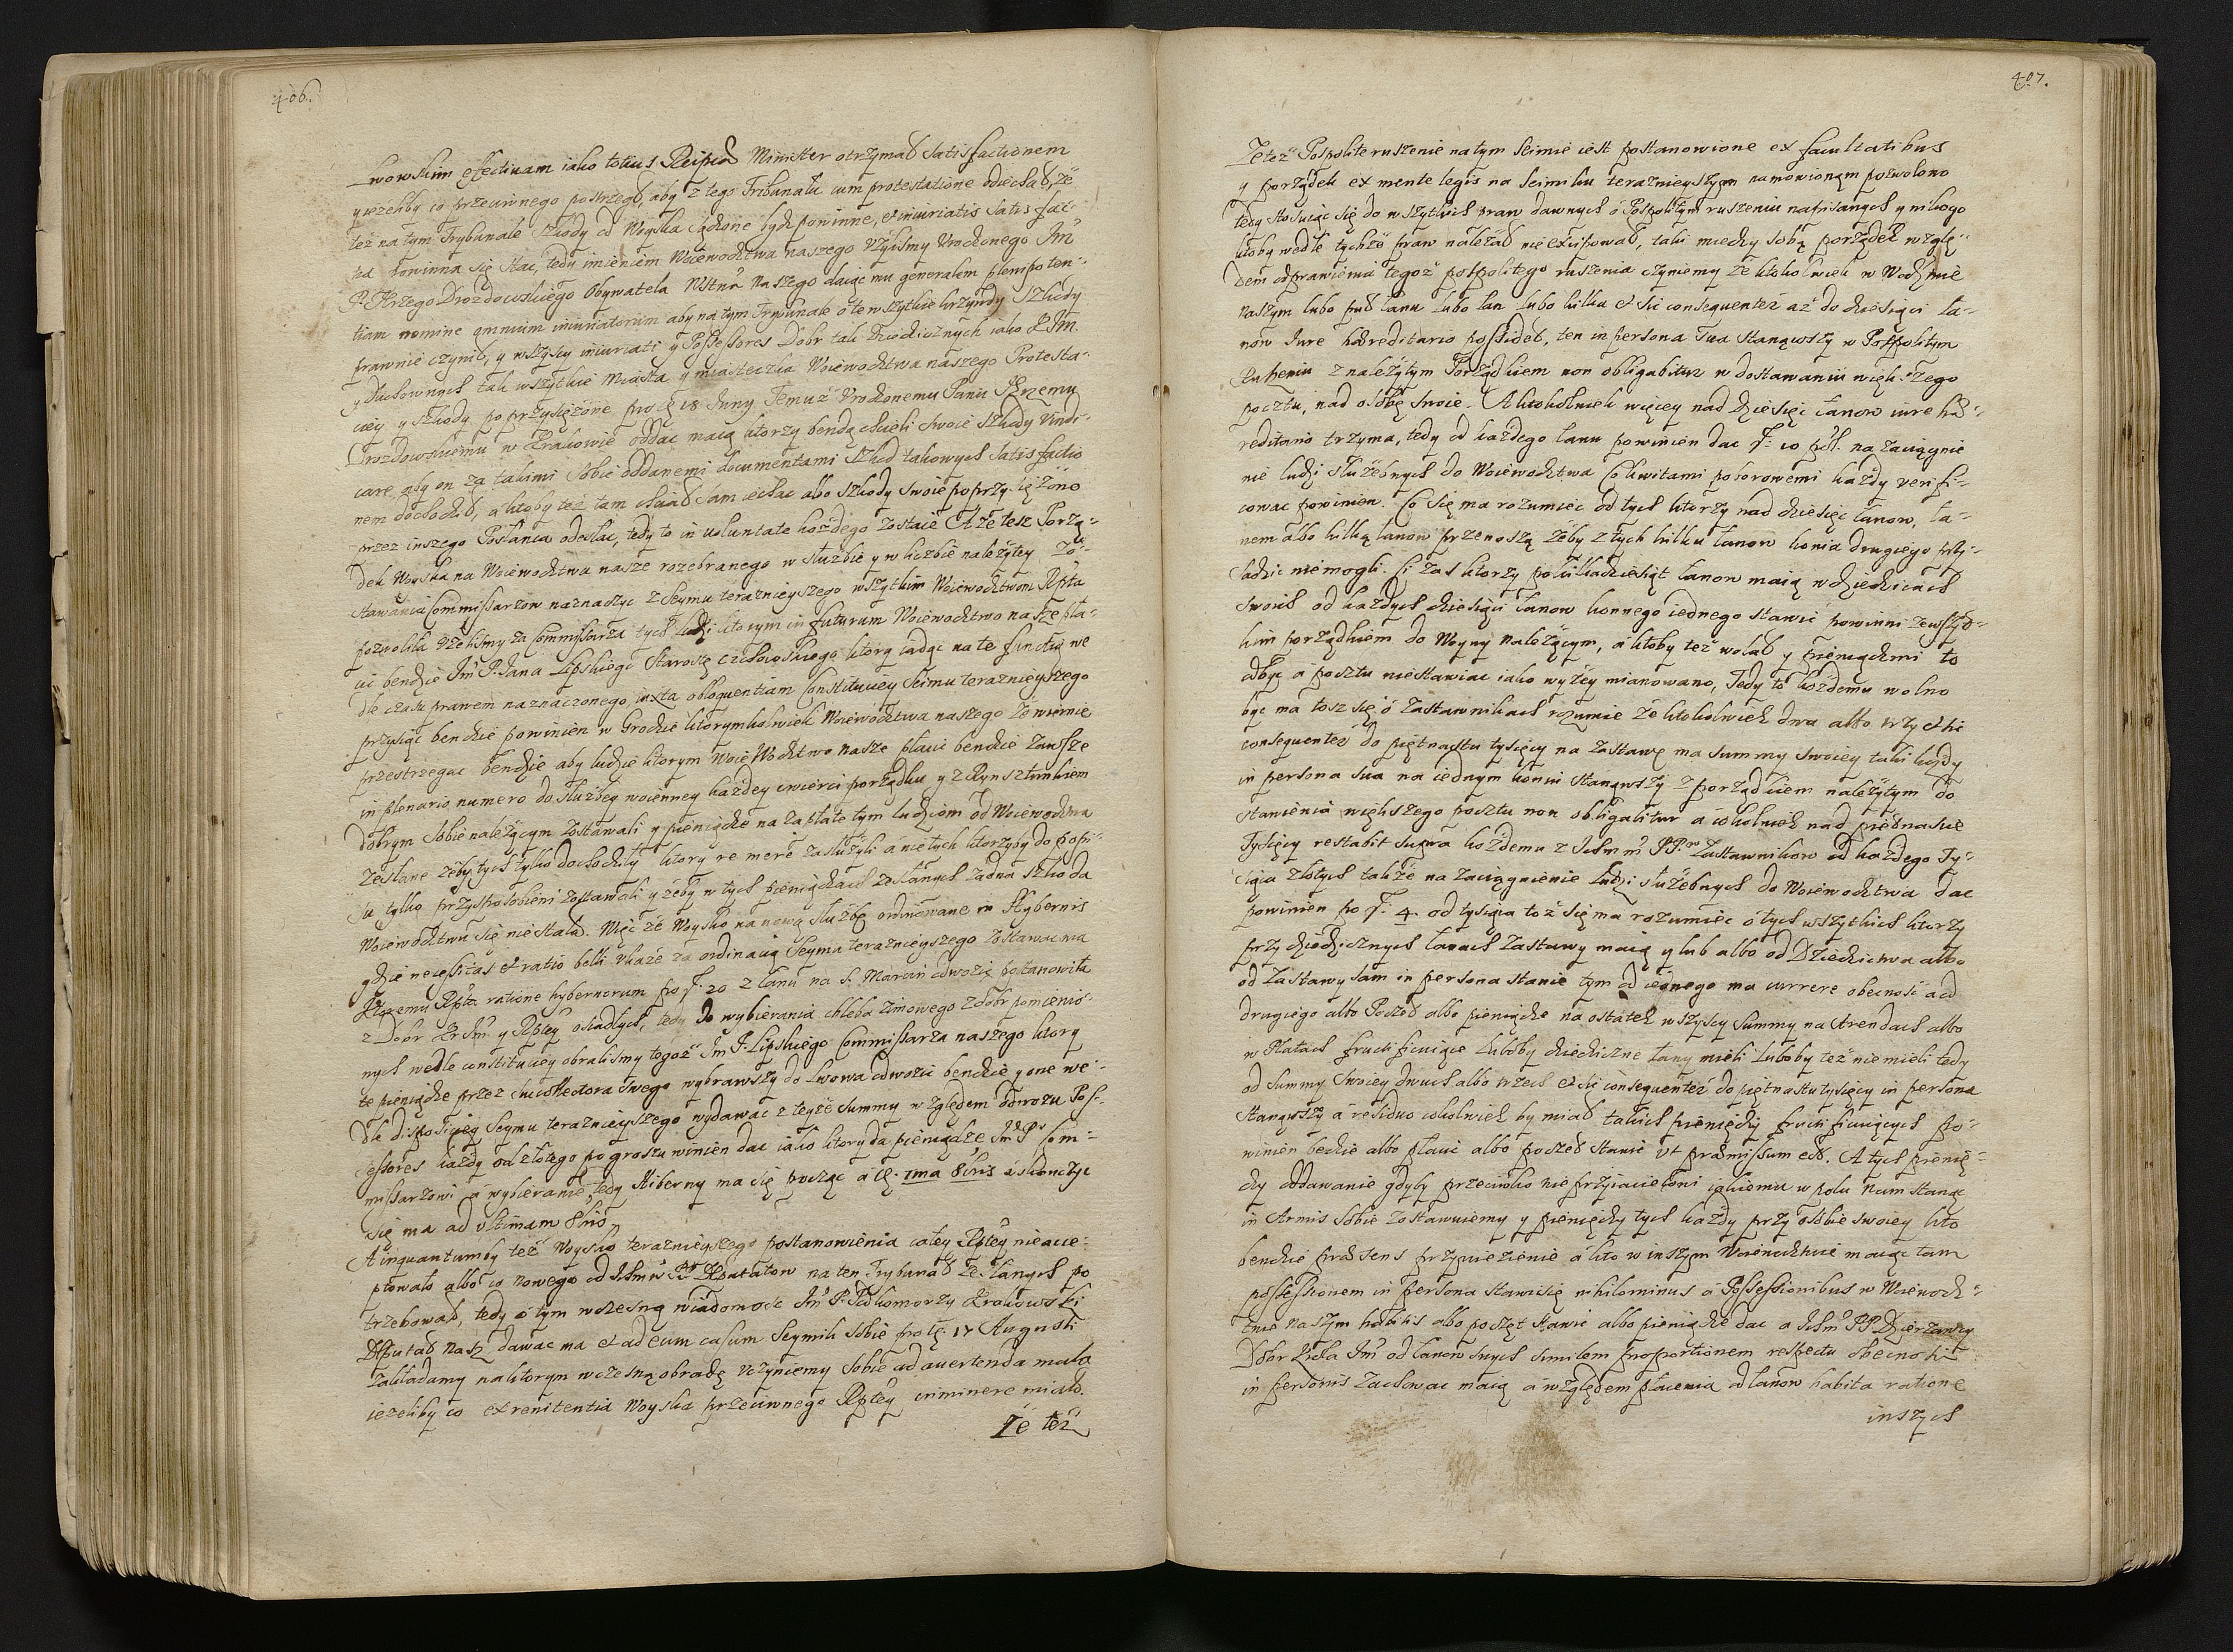 406.
Lwowskim effectivam iako totius Reipub. Minister otrzymał satisfactionem
y iezeliby co przeciwnego postrzegł, aby z tego Trybunału cum protestatione odiechał, że
też na tym Trybunale szkody od Woyska sądzone bydz powinne, et iniuriatis satisfac-
tia powinna się stac, tedy imieniem Woiewodztwa naszego Użyliśmy Urodzonego Jm
P. Jerzego Drozdowskiego Obywatela naszego daiąc mu generalem plenipoten-
tiam nomine omnium iniuriatorum aby na tym Trybunale o te wszytkie krzywdy szkody
prawnie czynił, y wszyscy iniuriati y Possessores Dobr tak Dziedzicznych iako JKM
y Duchownych tak wszytkie Miasta y miasteczka Woiewodztwa naszego Protesta-
ciey y szkody poprzysiężone pro 18 Juny Temuż Urodzonemu Panu Jerzemu
Drozdowskiemu w Krakowie oddac maią ktorzy bendą chcieli swoie szkody vindi-
care, aby on za takimi sobie oddanemi documentami szkod takowych satisfactio
nem dochodził, a ktoby też tam chciał sam iechac albo szkody swoie poprzysiężone
przez inszego Posłanca odesłac, tedy to in voluntate każdego zostaie A że tesz Porzą-
dek Woyska na Woiewodztwa nasze rozebranego w służbie y w liczbie należytey zo-
stawania Commissarzow naznaczyc z Seymu teraznieyszego wszytkim Woiewodztwom Rpta
pozwoliła Wzieliśmy za Commissarza tych ludzi ktorym in futurum Woiewodztwo nasze pła-
ci bendzie Jm P. Jana Lipskiego Starostę Czchowskiego ktory iadąc na te functią we
dle czasu prawem naznaczonego, iuxta obloquentiam Constituciey Seimu teraznieyszego
przysiąc bendzie powinien w Grodzie ktorymkolwiek Woiewodztwa naszego że wiernie
przestrzegac bendzie aby ludzie ktorym Woiewodztwo nasze płaci bendzie zawsze
in plenario numero do służbey woienney każdey cwierci porządku y z Rynsztunkiem
dobrym sobie należącym zostawali y pieniądze na zapłate tym ludziom od Woiewodztwa
zesłane żeby tych tylko dochodziły ktory re mere zasłużyli a nie tych ktorzyby do popi-
su tylko przysposobieni zostawali y żeby w tych pieniądzach zesłanych żadna szkoda
Woiewodztwu się nie stała. Więc że Woysko na nową służbę ordinowane in Hybernis
gdzie necessitas et ratio belli ukaże za ordinacią Seymu teraznieyszego zostawac ma
Ktoremu Rpta ratione hybernorum po f. 20 z łanu na S. Marcin odwozic postanowiła
z Dobr Kr Jm y Rptey osiadłych, tedy do wybierania chleba zimowego z dobr pomienio-
nych wedle constituciey obralismy tegoż Jm P. Lipskiego Commissarza naszego ktory
te pieniądze przez succollectora swego wybrawszy do Lwowa odwozic bendzie y one we-
dle dispositiey Seymu teraznieyszego wydawac z teyże summy względem odwozu Pos-
sessores każdy od złotego po groszu winien dac iako ktory da pieniądze Jm P. Com-
missarzowi a wybieranie tedy Hiberny ma się począc a 1ma 8bris a skonczyc
się ma ad ultimam 8bris
A inquantumby też Woysko teraznieyszego postanowienia całey Rptey nie acce-
ptowało albo co nowego od Ichmw PP. Deputatow na ten Trybunał zesłanych po
trzebował, tedy o tym wczesną wiadomosc Jm P. Podkomorzy Krakowski
Deputat nasz dawac ma et ad eum casum Seymik sobie pro 17 Augusti
zakładamy na ktorym wczesną obradę uczyniemy sobie ad avertenda mala
iezeliby co ex renitentia Woyska przeciwnego Rptey imminere miało.
Że też
407.
Że też Pospolite ruszenie na tym Seimie iest postanowione ex facultatibus
y porządek ex mente legis na Seimiku teraznieyszym namowionym pozwolono
tedy stosuiąc się do wszytkich praw dawnych o Pospolitym ruszeniu napisanych y nikogo
ktoby wedle tychże praw należał nie excipował, taki miedzy sobą porządek wzglę-
dem odprawienia tegoż pospolitego ruszenia czyniemy że ktokolwiek w Wodztwie
naszym lubo puł łanu lubo łan lubo kilku et sic consequenter aż do dziesiąci ła-
now Iure hæreditario possidet, ten in persona sua stanąwszy w Pospolitym
Ruszeniu z należytym Porządkiem non obligabitur w dostawaniu większego
pocztu, nad osobę swoie. A ktokolwiek więcey nad dziesięc łanow iure hæ-
reditario trzyma, tedy od każdego łanu powinien dac f. 10 pol. na zaciągnie
nie ludzi służebnych do Woiewodztwa Co kwitami poborowemi każdy verifi-
cowac powinien. Co się ma rozumiec od tych ktorzy nad dziesięc łanow, ła-
nem albo kilką łanow przenoszą żeby z tych kilku łanow konia drugiego przy-
sadzic niemogli. Ci zas ktorzy po kilkadziesiąt łanow maią w dziedzicach
swoich od każdych dziesiąci łanow konnego iednego stawic powinni zewszyst-
kim porządkiem do Woyny należącym, a ktoby też wolał y pieniądzmi to
odbyc a pocztu niestawiac iako wyżey mianowano, Tedy to każdemu wolno
byc ma tosz się o Zastawnikach rozumie że ktokolwiek dwa albo trzy et sic
consequenter do piętnastu tysięcy na Zastawę ma summy swoiey taki każdy
in persona sua na iednym koniu stanąwszy z porządkiem należytym do
stawienia większego pocztu non obligabitur a cokolwiek nad pietnascie
Tysięcy restabit supra każdemu z Ichmm PP. Zastawnikow od każdego Ty-
siąca złotych także na zaciągnienie ludzi służebnych do Woiewodztwa dac
powinien po f. 4. od tysiąca toż się ma rozumiec o tych wszytkich ktorzy
przy dziedzicznych łanach zastawy maią y lub albo od Dziedzictwa albo
od Zastawy sam in persona stanie tym od iednego ma currere obecnosc a od
drugiego albo Poczet albo pieniądze na ostatek wszyscy Summy na Arendach albo
w Płatach fructificuiące Luboby dziedziczne łany mieli luboby też niemieli tedy
od Summy swoiey dwuch albo trzech et sic consequenter do piętnastu tysięcy in persona
stanąwszy a residuo cokolwiek by miał takich pieniędzy fructificuiących po-
winien bedzie albo płacic albo poczet stawic ut præmissum est. A tych pienię-
dzy oddawanie gdyby przeciwko nieprzyiacielowi iakiemu w polu nam stanąc
in Armis sobie zostawuiemy y pieniędzy tych każdy przy osobie swoiey kto
bendzie præsens przywiezienie a kto w inszym Woiewodztwie maiąc tam
possessionem in persona stawi się nihilominus a Possessionibus w Woiewodz-
twie naszym habitis albo poczęt stawic albo pieniądze dac a Ichm PP. Dzierzawcy
Dobr Krola Jm od łanow swych similem proportionem respectu obecnosci
in personis zachowac maią a względem płacenia od łanow habita ratione
inszych